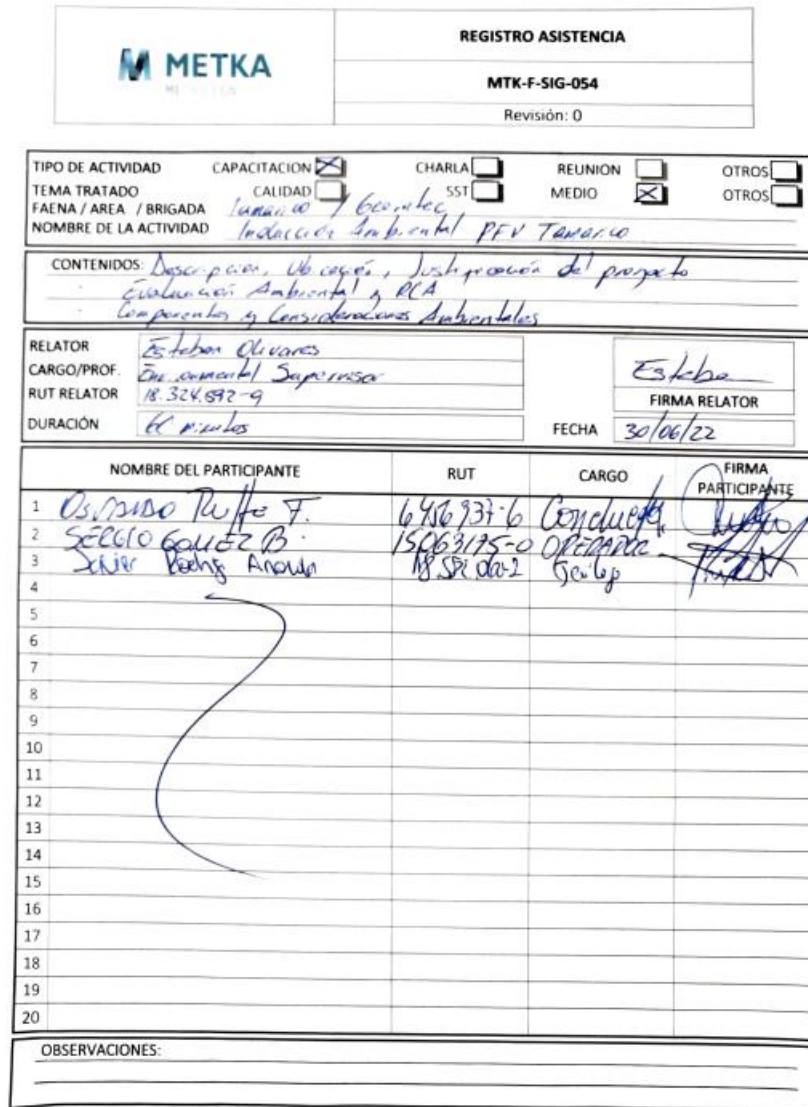 METKA
REGISTRO ASISTENCIA
MTK-F-SIG-054
Revisión: 0
TIPO DE ACTIVIDAD CAPACITACION CHARLA REUNION OTROS
TEMA TRATADO CALIDAD SST MEDIO OTROS
FAENA / AREA / BRIGADA
NOMBRE DE LA ACTIVIDAD Inducción Ambiental PFV Tamarico
CONTENIDOS: Descripcion, Ubicación, Justificación del proyecto
Evaluación Ambiental y RCA
Componentes y Consideraciones Ambientales
RELATOR Esteban Olivares
CARGO/PROF. Environmental Supervisor
RUT RELATOR 18.324.892-9
Esteban
FIRMA RELATOR
DURACIÓN 60 minutos FECHA 30/06/22
NOMBRE DEL PARTICIPANTE RUT CARGO FIRMA PARTICIPANTE
1 6456937-6 Conductor
2 SERGIO GOMEZ B. 15063175-0 OPERADOR
3 Javier
4
5
6
7
8
9
10
11
12
13
14
15
16
17
18
19
20
OBSERVACIONES: